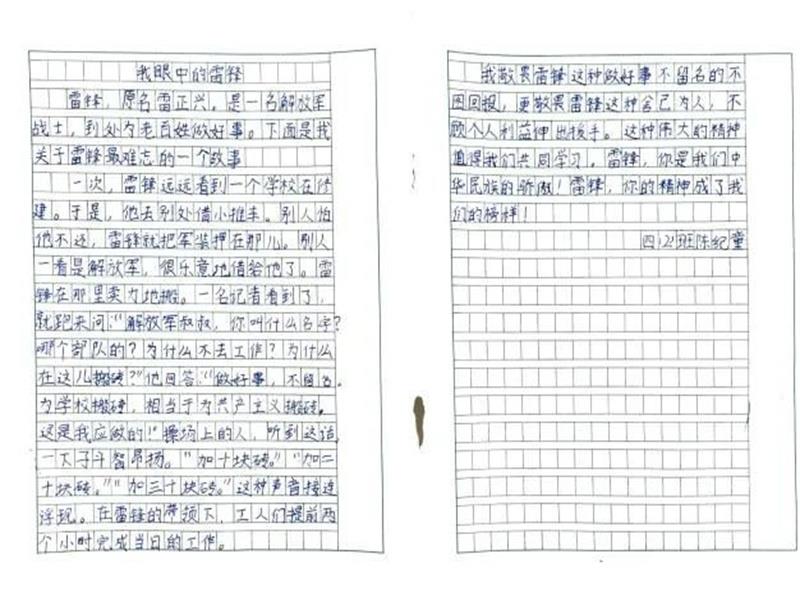 我眼中的雷锋
雷锋，原名雷正兴，是一名解放军
战士，到处为老百姓做好事。下面是我
关于雷锋最难忘的一个故事
一次，雷锋远远看到一个学校在修
建。于是，他去别处借小推车。别人怕
他不还，雷锋就把军装押在那儿。别人
一看是解放军，很乐意地借给他了。雷
锋在那里卖力地搬。一名记者看到了，
就跑来问：“解放军叔叔，你叫什么名字？
哪个部队的？为什么不去工作？为什么
在这儿搬砖？”他回答：“做好事，不留名。
为学校搬砖，相当于为共产主义搬砖。
这是我应做的！”操场上的人，听到这话
一下子斗智昂扬。“加十块砖。”“加二
十块砖。”“加三十块砖。”这种声音接连
浮现。在雷锋的带领下，工人们提前两
个小时完成当日的工作。
我敬畏雷锋这种做好事不留名的不
因回报，更敬畏雷锋这种舍己为人，不
顾个人利益伸出援手。这种伟大的精神
值得我们共同学习。雷锋，你是我们中
华民族的骄傲！雷锋，你的精神成了我
们的榜样！
四(2)班陈纪童